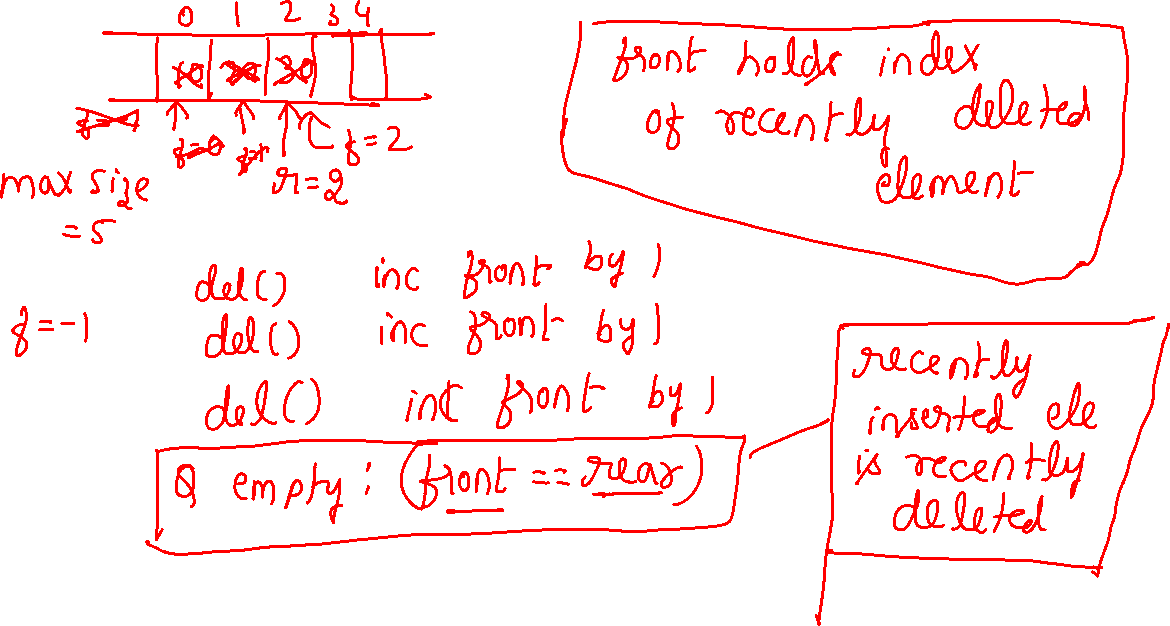 0 1 2 3 4
10 20 30
f=-1
f=0 f=1 r=2 f=2
max size
=5
front holds index
of recently deleted
element
f=-1
del() inc front by 1
del() inc front by 1
del() inc front by 1
Q empty : (front == rear)
recently
inserted ele
is recently
deleted